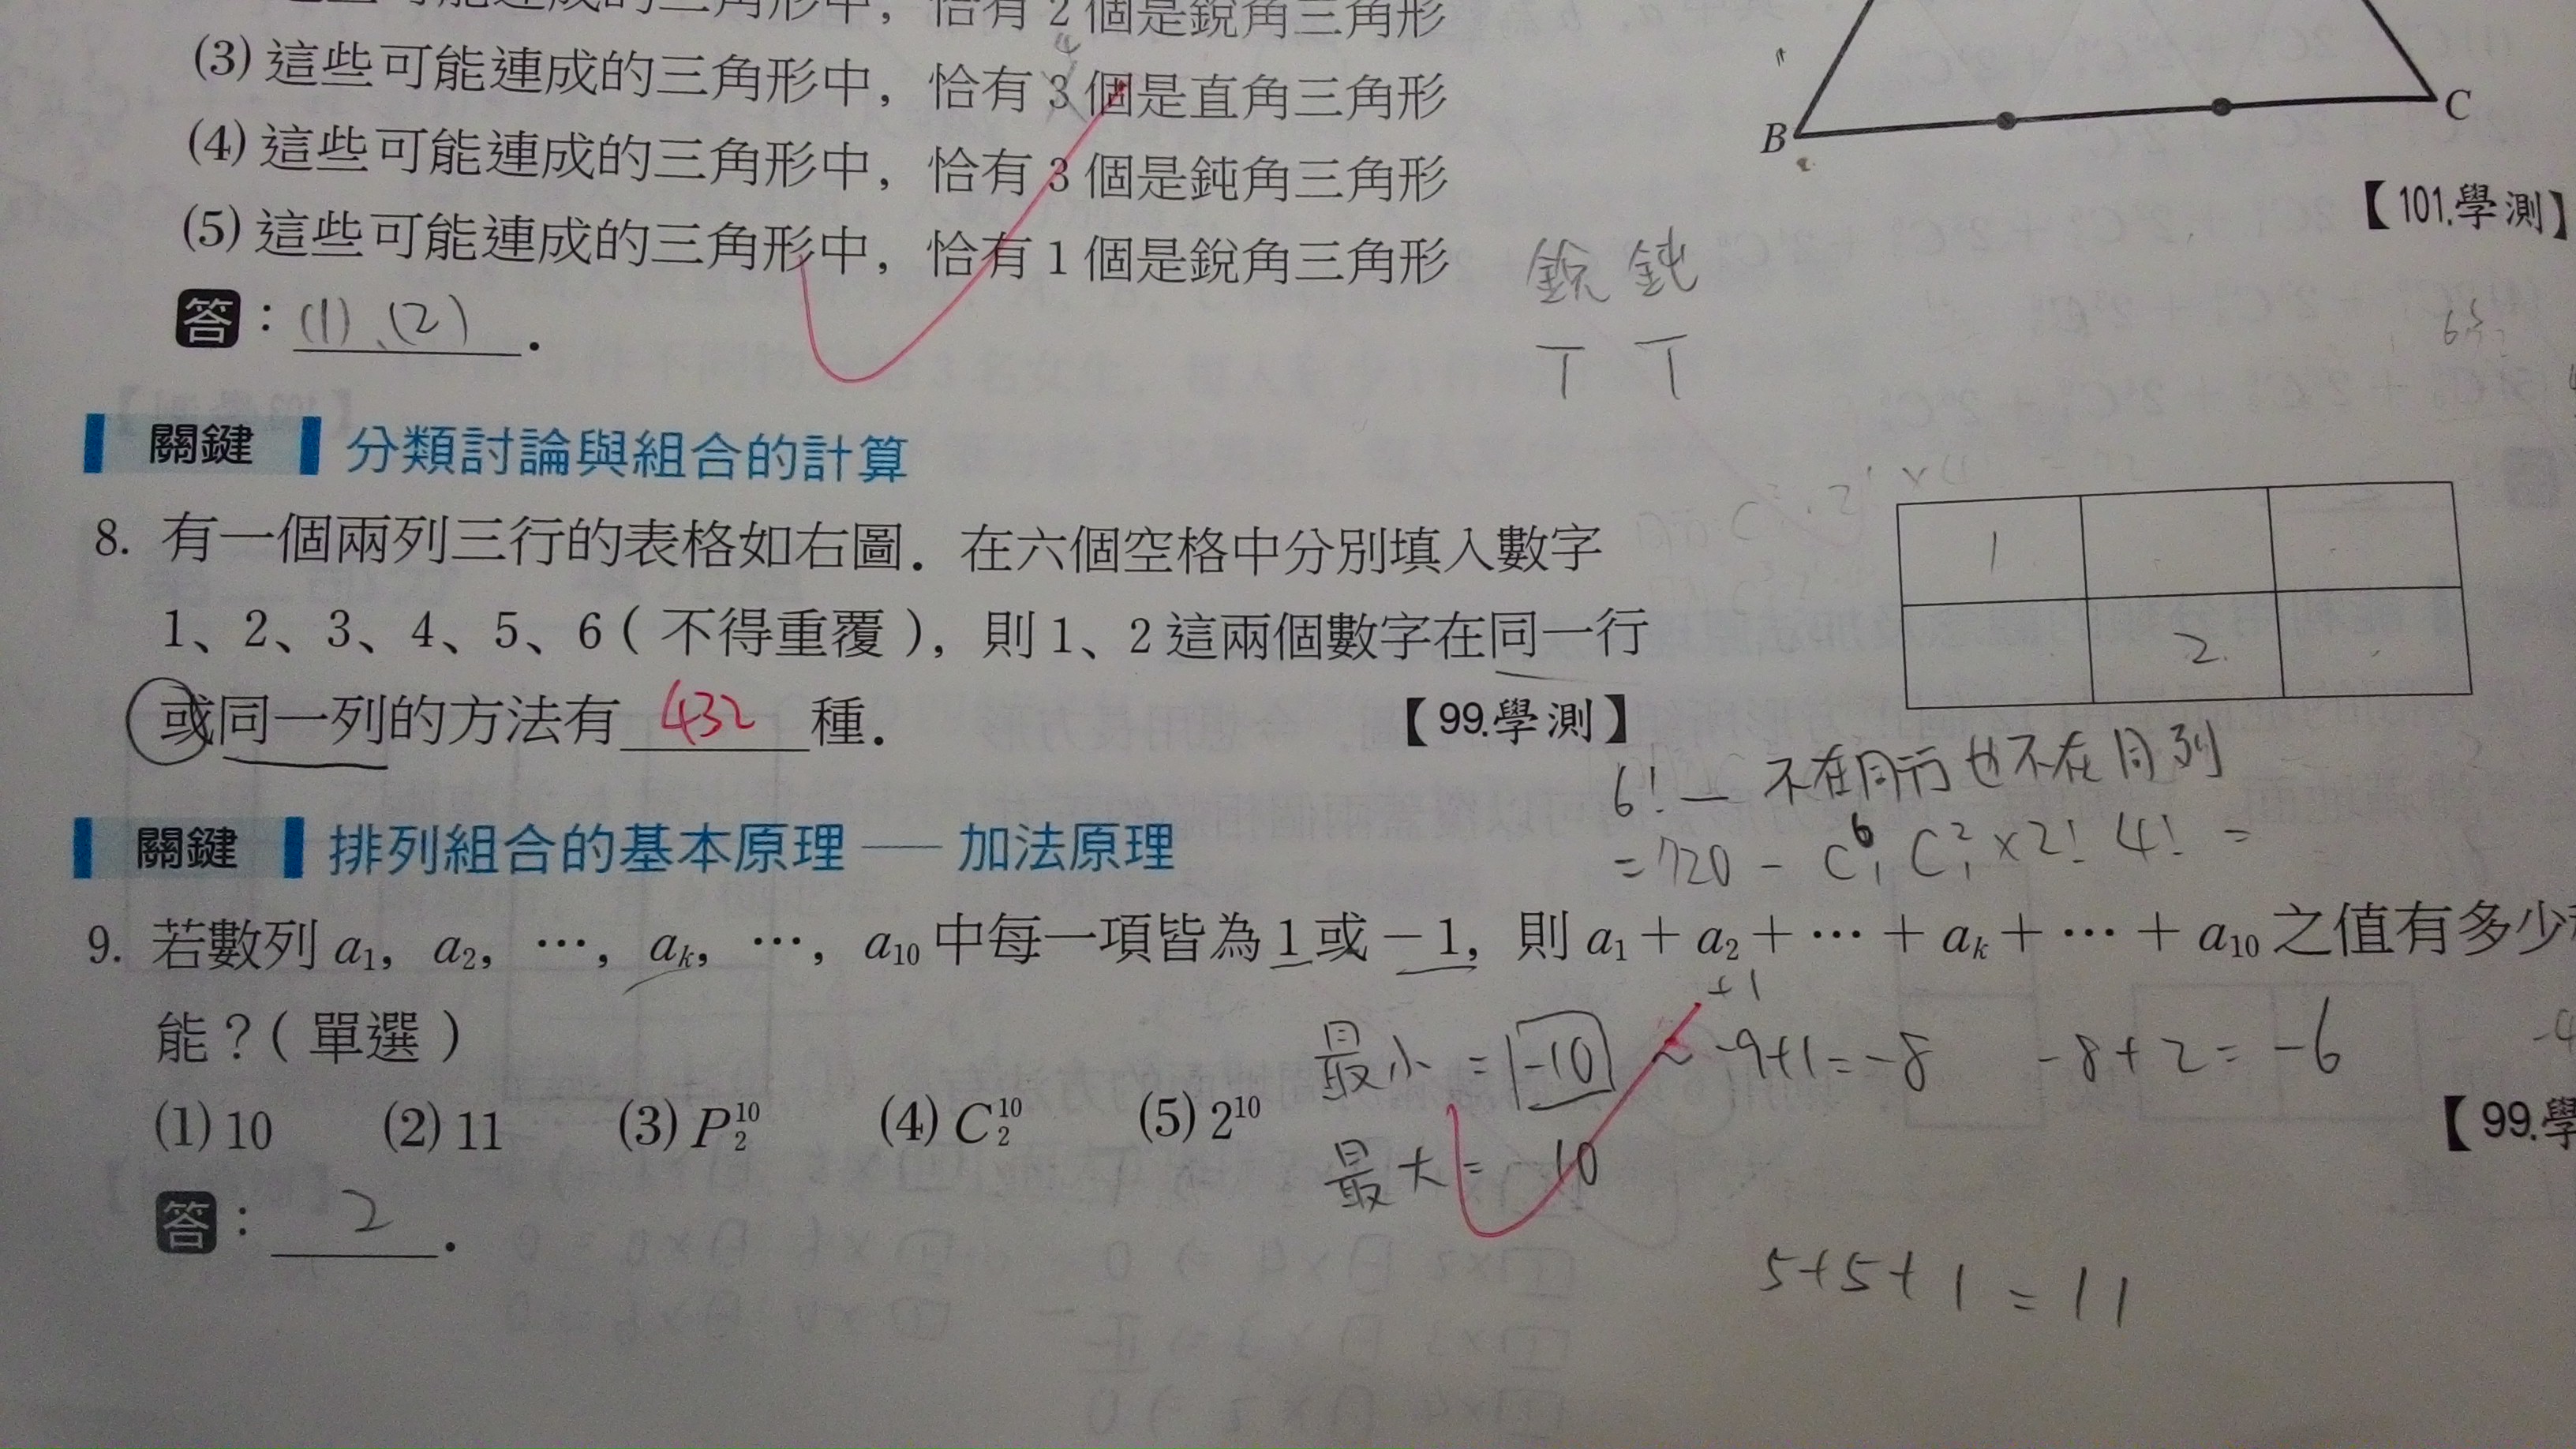 這些可能連成的三角形中，恰有 2 個是銳角三角形
4
(3) 這些可能連成的三角形中，恰有 3 個是直角三角形
(4) 這些可能連成的三角形中，恰有 3 個是鈍角三角形
(5) 這些可能連成的三角形中，恰有 1 個是銳角三角形
B
C
【101.學測】
銳 鈍
丅 丅
答：(1)、(2)．
關鍵 分類討論與組合的計算
8. 有一個兩列三行的表格如右圖．在六個空格中分別填入數字
1、2、3、4、5、6（不得重覆），則 1、2 這兩個數字在同一行
或同一列的方法有 432 種．
【99.學測】
1
2
6! － 不在同行也不在同列
= 720 - C⁶₁ C²₁ × 2! 4! =
關鍵 排列組合的基本原理 — 加法原理
9. 若數列 a₁，a₂，…，aₖ，…，a₁₀ 中每一項皆為 1 或 －1，則 a₁ + a₂ + … + aₖ + … + a₁₀ 之值有多少
能？（單選）
(1) 10 (2) 11 (3) P¹⁰₂ (4) C¹⁰₂ (5) 2¹⁰
答：2．
+1
最小 = -10 ~ -9+1=-8 -8+2=-6
最大 = 10
【99.學
5+5+1 = 11